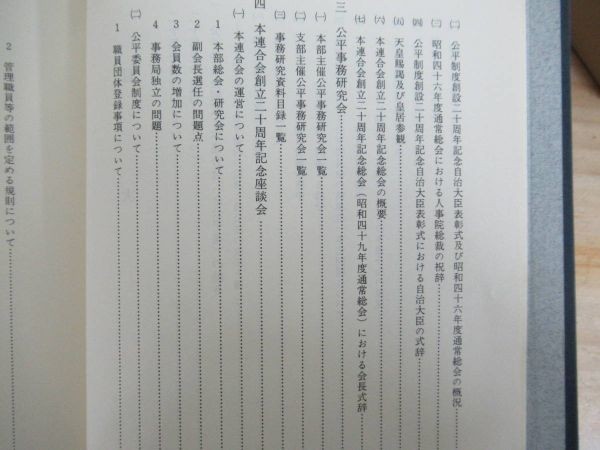 ㈡ 公平制度創設二十周年記念自治大臣表彰式及び昭和四十六年度通常総会の概況
㈢ 昭和四十六年度通常総会における人事院総裁の祝辞
㈣ 公平制度創設二十周年記念自治大臣表彰式における自治大臣の式辞
㈤ 天皇賜謁及び皇居参観
㈥ 本連合会創立二十周年記念総会の概要
㈦ 本連合会創立二十周年記念総会（昭和四十九年度通常総会）における会長式辞
三 公平事務研究会
㈠ 本部主催公平事務研究会一覧
㈡ 支部主催公平事務研究会一覧
㈢ 事務研究資料目録一覧
四 本連合会創立二十周年記念座談会
㈠ 本連合会の運営について
1 本部総会・研究会について
2 副会長選任の問題点
3 会員数の増加について
4 事務局独立の問題
㈡ 公平委員会制度について
1 職員団体登録事項について
2 管理職員等の範囲を定める規則について